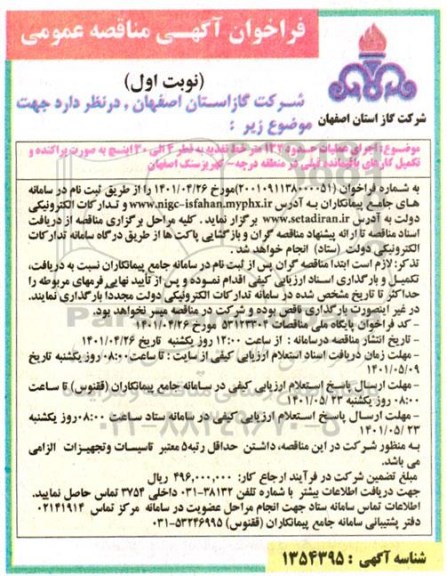 فراخوان آگهـی مناقصه عمومی
(نوبت اول)
شرکت گاز استان اصفهان , درنظر دارد جهت
موضوع زیر :
شرکت گاز استان اصفهان
موضوع: اجرای عملیات حدود ۱۲۲ متر خط تغذیه به قطر ۴ الی ۳۰ اینچ به صورت پراکنده و
تکمیل کارهای باقیمانده قبلی در منطقه درچه - کهریزسنگ اصفهان
به شماره فراخوان (۲۰۰۱۰۹۱۱۳۸۰۰۰۰۵۱)مورخ ۱۴۰۱/۰۴/۲۶ را از طریق ثبت نام در سامانه
های جامع پیمانکاران به آدرس www.nigc-isfahan.myphx.ir و تدارکات الکترونیکی
دولت به آدرس www.setadiran.ir برگزار نماید . کلیه مراحل برگزاری مناقصه از دریافت
اسناد مناقصه تا ارائه پیشنهاد مناقصه گران و بازگشایی پاکت ها از طریق درگاه سامانه تدارکات
الکترونیکی دولت (ستاد) انجام خواهد شد .
تذکر: لازم است ابتدا مناقصه گران پس از ثبت نام در سامانه جامع پیمانکاران نسبت به دریافت،
تکمیل و بارگذاری اسناد ارزیابی کیفی اقدام نموده و پس از تأیید نهایی فرمهای مربوطه را
حداکثر تا تاریخ مشخص شده در سامانه تدارکات الکترونیکی دولت مجدداً بارگذاری نمایند.
در غیر اینصورت بارگذاری ناقص بوده و شرکت در مناقصه میسر نخواهد بود.
- کد فراخوان پایگاه ملی مناقصات ۵۳۱۲۳۳۰۲ مورخ ۱۴۰۱/۰۴/۲۶
- تاریخ انتشار مناقصه درسامانه : از ساعت ۱۴:۰۰ روز یکشنبه تاریخ ۱۴۰۱/۰۴/۲۶
- مهلت زمان دریافت اسناد استعلام ارزیابی کیفی از سایت : تا ساعت۰۸:۰۰ روز یکشنبه تاریخ
۱۴۰۱/۰۵/۰۹
- مهلت ارسال پاسخ استعلام ارزیابی کیفی در سامانه جامع پیمانکاران (ققنوس) تا ساعت
۰۸:۰۰ روز یکشنبه ۱۴۰۱/۰۵/۲۳
- مهلت ارسال پاسخ استعلام ارزیابی کیفی در سامانه ستاد ساعت ۰۸:۰۰روز یکشنبه
۱۴۰۱/۰۵/۲۳
به منظور شرکت در این مناقصه، داشتن حداقل رتبه۵ معتبر تاسیسات وتجهیزات الزامی
می باشد.
مبلغ تضمین شرکت در فرآیند ارجاع کار: ۴۹۶,۰۰۰,۰۰۰ ریال
جهت دریافت اطلاعات بیشتر با شماره تلفن ۳۸۱۳۲-۰۳۱ داخلی ۳۷۵۴ تماس حاصل نمایید.
اطلاعات تماس سامانه ستاد جهت انجام مراحل عضویت در سامانه مرکز تماس ۰۲۱۴۱۹۱۴
دفتر پشتیبانی سامانه جامع پیمانکاران (ققنوس) ۵۳۲۴۶۹۹۵-۰۳۱
شناسه آگهی : ۱۳۵۴۳۹۵